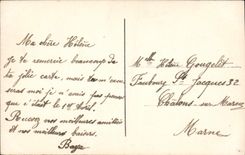 Ma chère Hélène
Je te remercie beaucoup de
ta jolie carte. mais tu m'en
seras moi je n'avais pas pensé
que c'était le 1er Avril.
Recevez nos meilleures amitiés
et nos meilleurs baisers.
Mlle Hélène Gougelet
Faubourg St Jacques 32
Chalons sur Marne
Marne